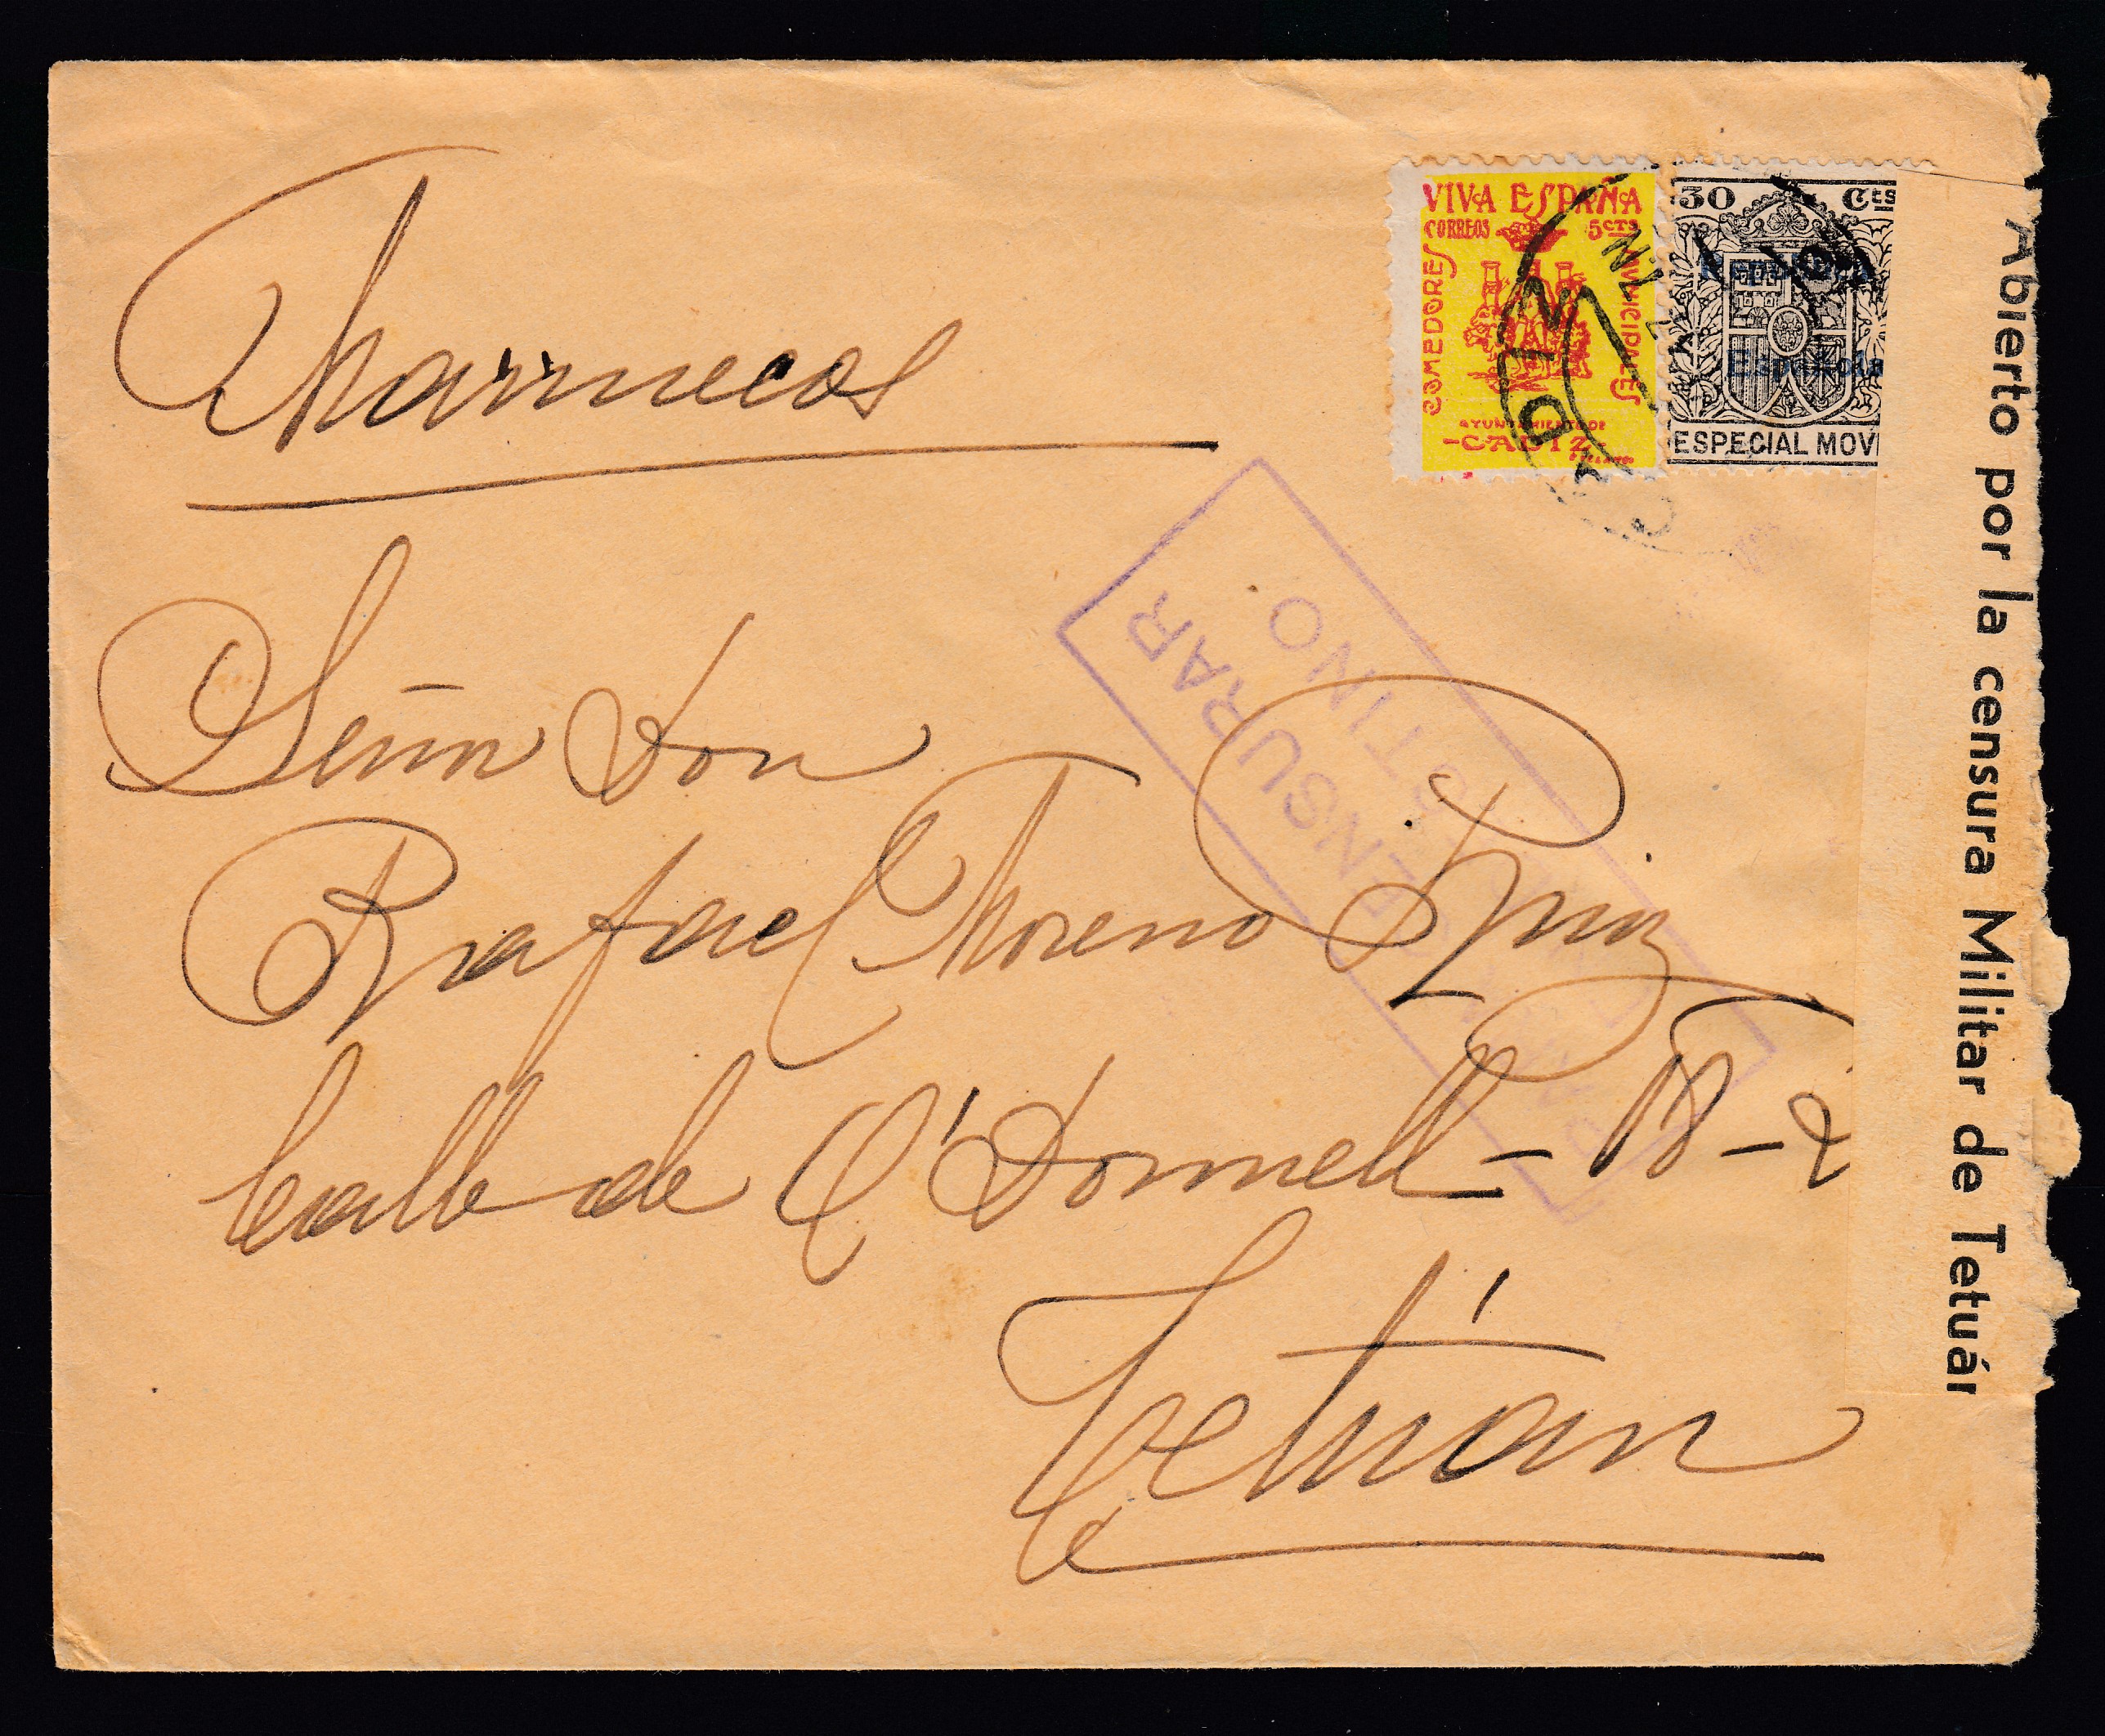 Marruecos
VIVA ESPAÑA
CORREOS 5CTS
COMEDORES
MUNICIPALES
AYUNTAMIENTO DE
-CADIZ-
30 Cts
República
Española
ESPECIAL MOVI
CADIZ
CENSURAR
DESTINO.
Señor Don
Rafael Moreno Ruiz
Calle de O'Donnell - 18 - 2
Tetuán
Abierto por la censura Militar de Tetuán